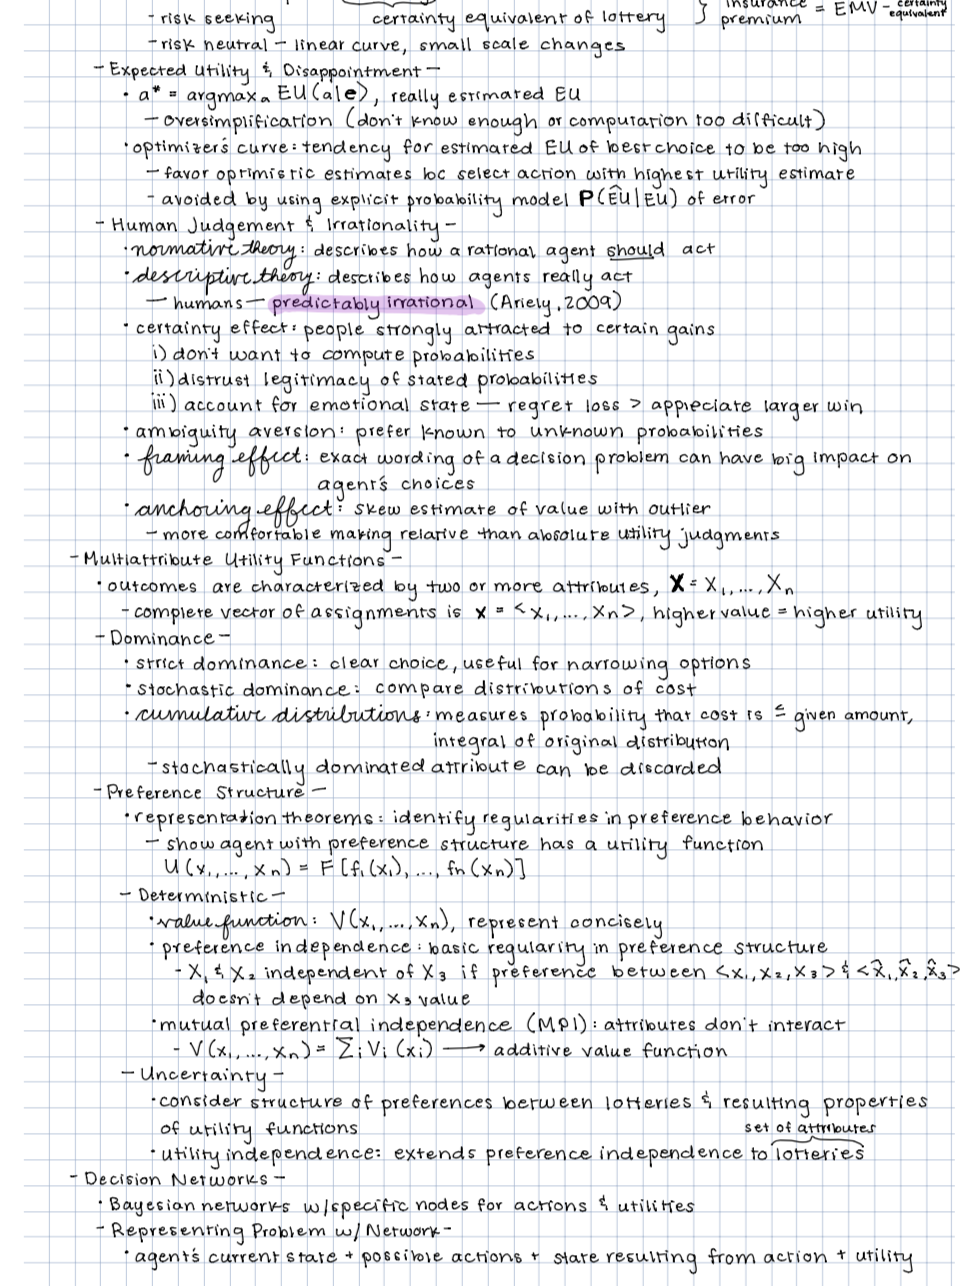 - risk seeking certainty equivalent of lottery } insurance premium = EMV - certainty equivalent
- risk neutral - linear curve, small scale changes
- Expected Utility & Disappointment -
• a* = argmaxₐ EU(a|e), really estimated EU
- oversimplification (don't know enough or computation too difficult)
• optimizer's curve: tendency for estimated EU of best choice to be too high
- favor optimistic estimates bc select action with highest utility estimate
- avoided by using explicit probability model P(ÊU|EU) of error
- Human Judgement & Irrationality -
• normative theory: describes how a rational agent should act
• descriptive theory: describes how agents really act
- humans - predictably irrational (Ariely, 2009)
• certainty effect: people strongly attracted to certain gains
i) don't want to compute probabilities
ii) distrust legitimacy of stated probabilities
iii) account for emotional state - regret loss > appreciate larger win
• ambiguity aversion: prefer known to unknown probabilities
• framing effect: exact wording of a decision problem can have big impact on
agent's choices
• anchoring effect: skew estimate of value with outlier
- more comfortable making relative than absolute utility judgments
- Multiattribute Utility Functions -
• outcomes are characterized by two or more attributes, X = X₁, ..., Xₙ
- complete vector of assignments is x = <x₁, ..., xₙ>, higher value = higher utility
- Dominance -
• strict dominance: clear choice, useful for narrowing options
• stochastic dominance: compare distributions of cost
• cumulative distributions: measures probability that cost is ≤ given amount,
integral of original distribution
- stochastically dominated attribute can be discarded
- Preference Structure -
• representation theorems: identify regularities in preference behavior
- show agent with preference structure has a utility function
U(x₁, ..., xₙ) = F[f₁(x₁), ..., fₙ(xₙ)]
- Deterministic -
• value function: V(x₁, ..., xₙ), represent concisely
• preference independence: basic regularity in preference structure
- X₁ & X₂ independent of X₃ if preference between <x₁, x₂, x₃> & <x̂₁, x̂₂, x̂₃>
doesn't depend on x₃ value
• mutual preferential independence (MPI): attributes don't interact
- V(x₁, ..., xₙ) = Σᵢ Vᵢ(xᵢ) → additive value function
- Uncertainty -
• consider structure of preferences between lotteries & resulting properties
of utility functions
set of attributes
• utility independence: extends preference independence to lotteries
- Decision Networks -
• Bayesian networks w/ specific nodes for actions & utilities
- Representing Problem w/ Network -
• agent's current state + possible actions + state resulting from action + utility